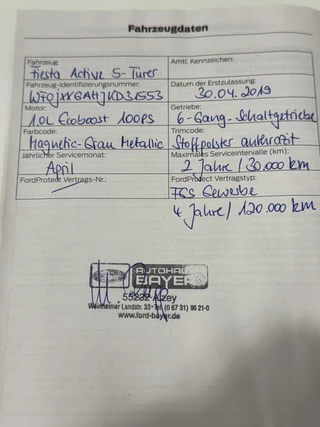 Fahrzeugdaten
Fahrzeug:
Fiesta Active 5-Türer
Amtl. Kennzeichen:
Fahrzeug-Identifizierungsnummer:
WF0JXXGAHJKD31553
Datum der Erstzulassung:
30.04.2019
Motor:
1.0L EcoBoost 100PS
Getriebe:
6-Gang-Schaltgetriebe
Farbcode:
Magnetic-Grau Metallic
Trimcode:
Stoffpolster anthrazit
Jährlicher Servicemonat:
April
Maximales Serviceintervalle (km):
2 Jahre / 30.000 km
FordProtect Vertrags-Nr.:
FordProtect Vertragstyp:
FGS Gewerbe
4 Jahre / 120.000 km
AUTOHAUS
BAYER
55232 Alzey
Weinheimer Landstr. 33 • Tel. (0 67 31) 96 21-0
www.ford-bayer.de